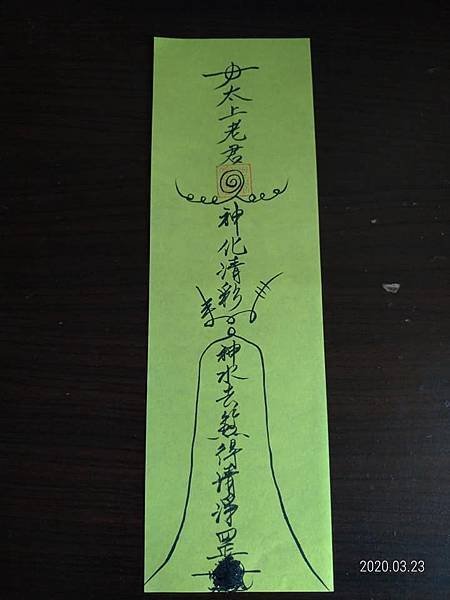 太上老君
神化清彩
神水去煞得清淨
罡
2020.03.23